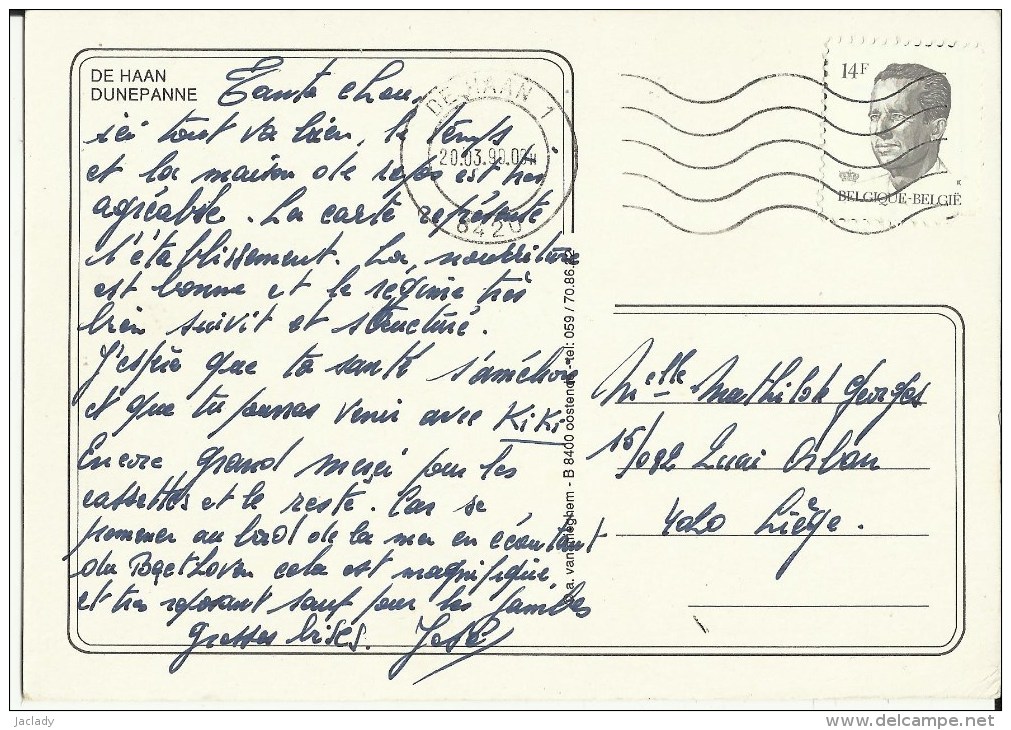 DE HAAN
DUNEPANNE
Tante chou,
ici tout va bien, le temps
et la maison de repos est très
agréable. La carte représente
l'établissement. La nourriture
est bonne et le régime très
bien suivit et structuré.
J'espère que ta santé s'améliore
et que tu pourras venir avec Kiki
Encore grand merci pour les
cassettes et le reste. Car se
promener au bord de la mer en écoutant
du Beethoven cela est magnifique
et très reposant sauf pour les jambes
Grosses bises. José
DE HAAN 1
20.03.90
8420
14F
BELGIQUE-BELGIË
a. van - B 8400 oostende - tel: 059 / 70.86.
Melle Mathilde Georges
15/092 Quai Orban
4020 Liège.
jaclady
www.delcampe.net